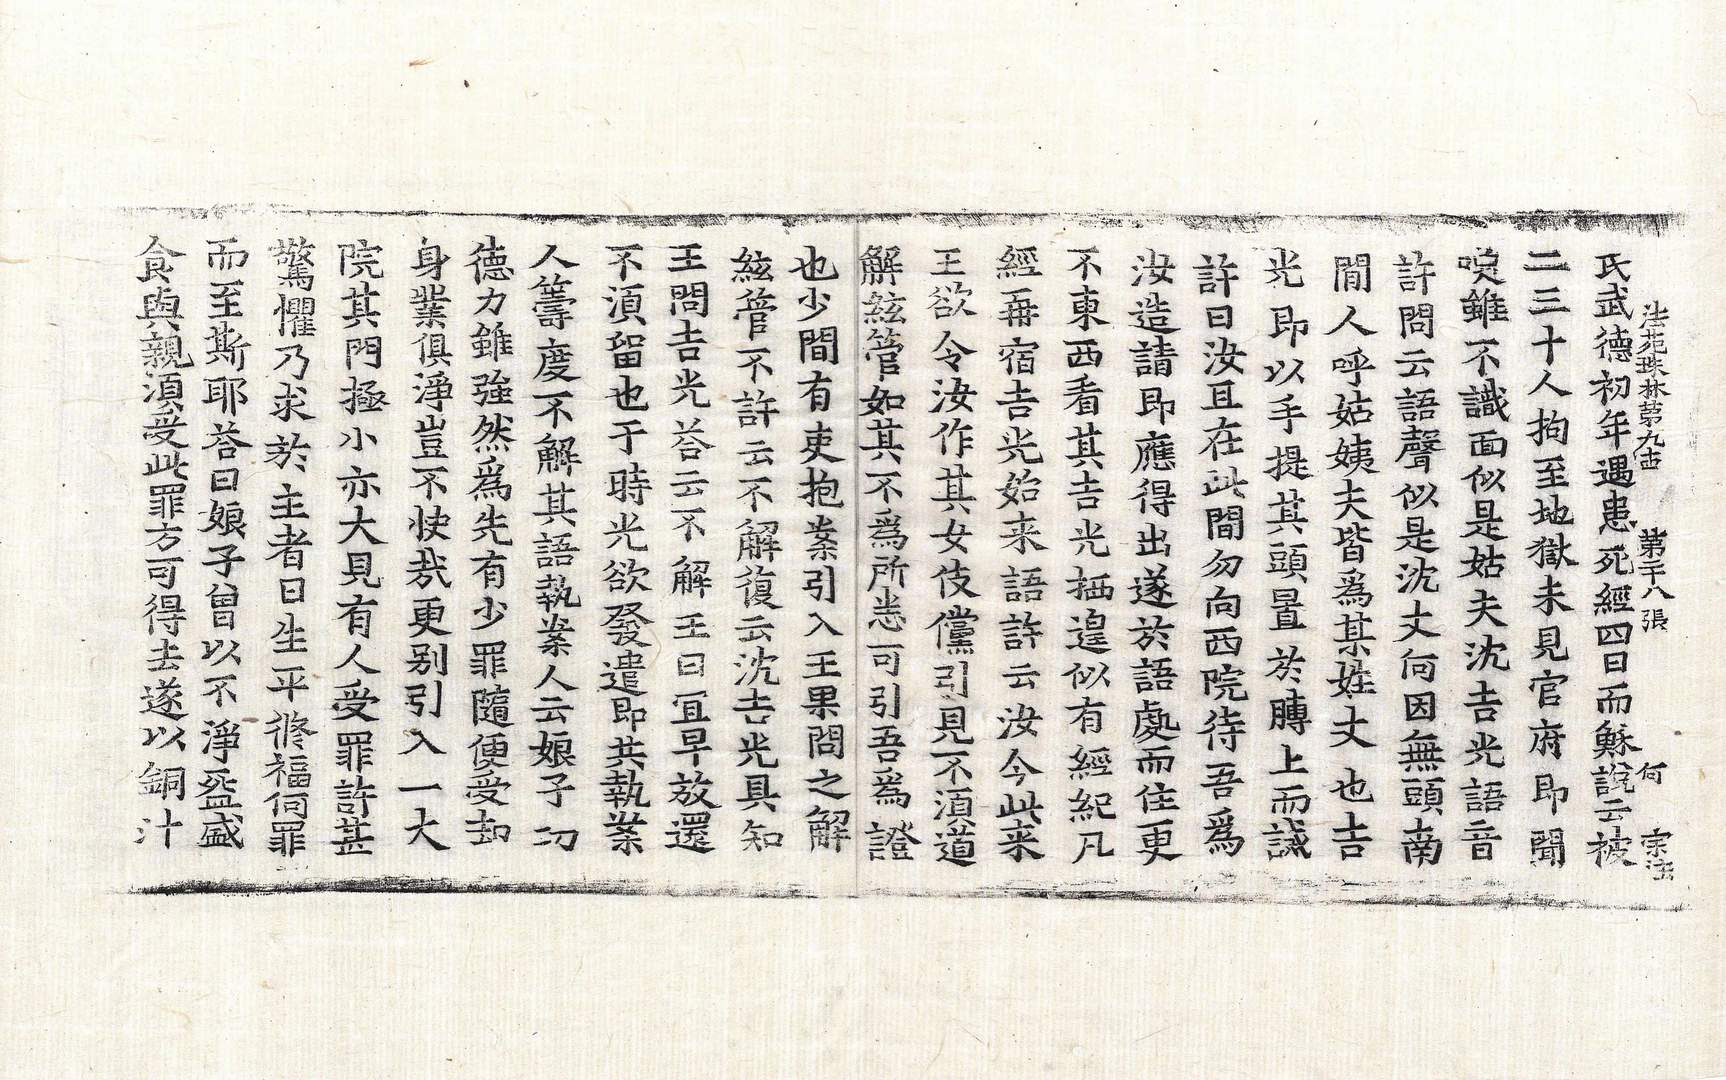 法苑珠林第九十古　第二十八張　何　宗法
氏武德初年遇患死經四日而穌說云被
二三十人拘至地獄未見官府即聞
喚雖不識面似是姑夫沈吉光語音
許問云語聲似是沈丈何因無頭南
閒人呼姑姨夫皆爲某姓丈也吉
光即以手提其頭置於膊上而誡
許曰汝且在此間勿向西院待吾爲
汝造請即應得出遂於語處而住更
不東西看其吉光栖遑似有經紀凡
經再宿吉光始来語許云汝今此来
王欲令汝作其女伎儻引見不湏道
解絃管如其不爲所恙可引吾爲證
也少間有吏抱案引入王果問之解
絃管不許云不解復云沈吉光具知
王問吉光荅云不解王曰宜早放還
不湏留也于時光欲發遣即共執案
人籌度不解其語執案人云娘子功
德力雖強然爲先有少罪隨便受却
身業俱淨豈不快哉更别引入一大
院其門極小亦大見有人受罪許甚
驚懼乃求於主者曰生平修福何罪
而至斯耶荅曰娘子曾以不淨盌盛
食與親湏受此罪方可得去遂以銅汁